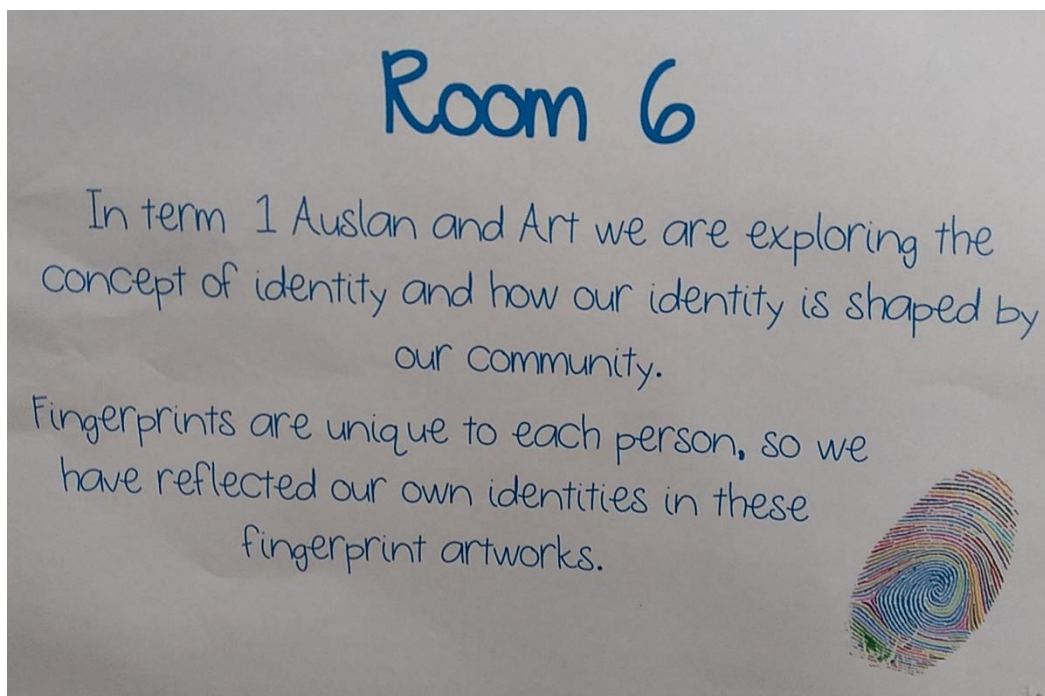 Room 6
In term 1 Auslan and Art we are exploring the
concept of identity and how our identity is shaped by
our community.
Fingerprints are unique to each person, so we
have reflected our own identities in these
fingerprint artworks.